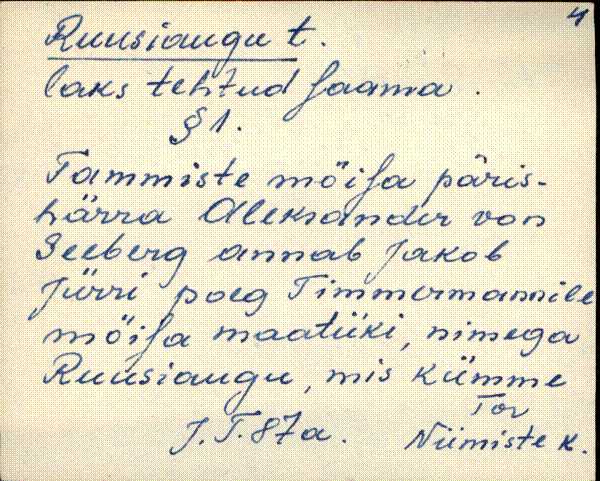 4
Ruusiaugu t.
laks tehtud saama.
§ 1.
Tammiste mõisa päris-
härra Aleksander von
Seeberg annab Jakob
Jürri poeg Timmermannile
mõisa maatüki, nimega
Ruusiaugu, mis kümme
Tor
J. T. 87a. Niimiste k.